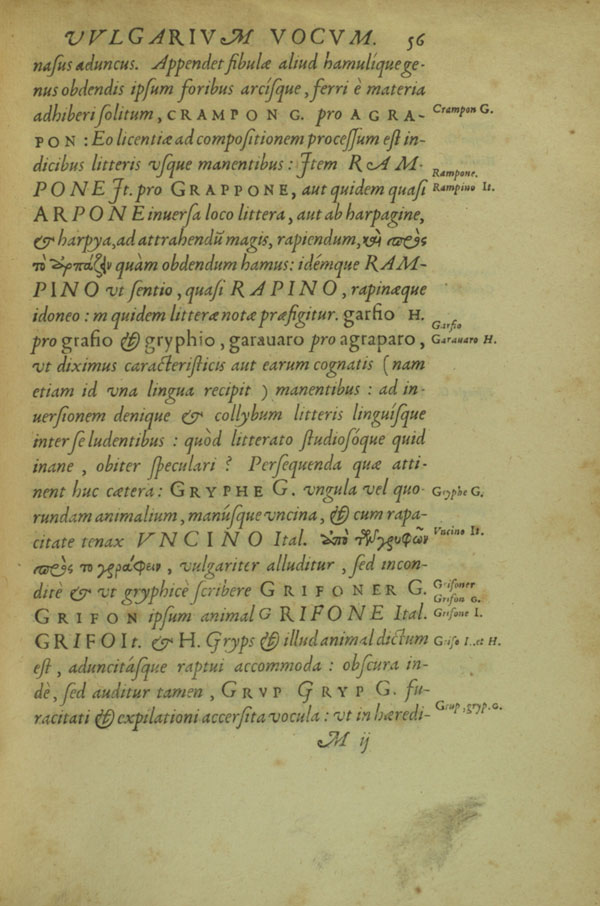 VVLGARIVM VOCVM. 56
nasus aduncus. Appendet fibulæ aliud hamulique ge-
nus obdendis ipsum foribus arcísque, ferri è materia
adhiberi solitum, CRAMPON G. pro AGRA-
PON: Eo licentiæ ad compositionem processum est in-
dicibus litteris vsque manentibus: Item RAM-
PONE It. pro GRAPPONE, aut quidem quasi
ARPONE inuersa loco littera, aut ab harpagine,
& harpya, ad attrahendũ magis, rapiendum, καὶ πρὸς
τὸ ἁρπάζειν quàm obdendum hamus: idémque RAM-
PINO vt sentio, quasi RAPINO, rapinæque
idoneo: m quidem litteræ notæ præfigitur. garfio H.
pro grafio & gryphio, garauaro pro agraparo,
vt diximus caracteristicis aut earum cognatis (nam
etiam id vna lingua recipit) manentibus: ad in-
uersionem denique & collybum litteris linguísque
inter se ludentibus: quòd litterato studiosóque quid
inane, obiter speculari? Persequenda quæ atti-
nent huc cætera: GRYPHE G. vngula vel quo-
rundam animalium, manúsque vncina, & cum rapa-
citate tenax VNCINO Ital. ἀπὸ τῶν γρυφῶν
πρὸς το γράφειν, vulgariter alluditur, sed incon-
ditè & vt gryphicè scribere GRIFONER G.
GRIFON ipsum animal GRIFONE Ital.
GRIFO It. & H. Gryps & illud animal dictum
est, aduncitásque raptui accommoda: obscura in-
dè, sed auditur tamen, GRVP GRYP G. fu-
racitati & expilationi accersita vocula: vt in hæredi-
M ij
Crampon G.
Rampone.
Rampino It.
Garfio
Garauaro H.
Gryphe G.
Vncino It.
Grifoner
Grifon G.
Grifone I.
Grifo I. et H.
Grup, gryp. G.